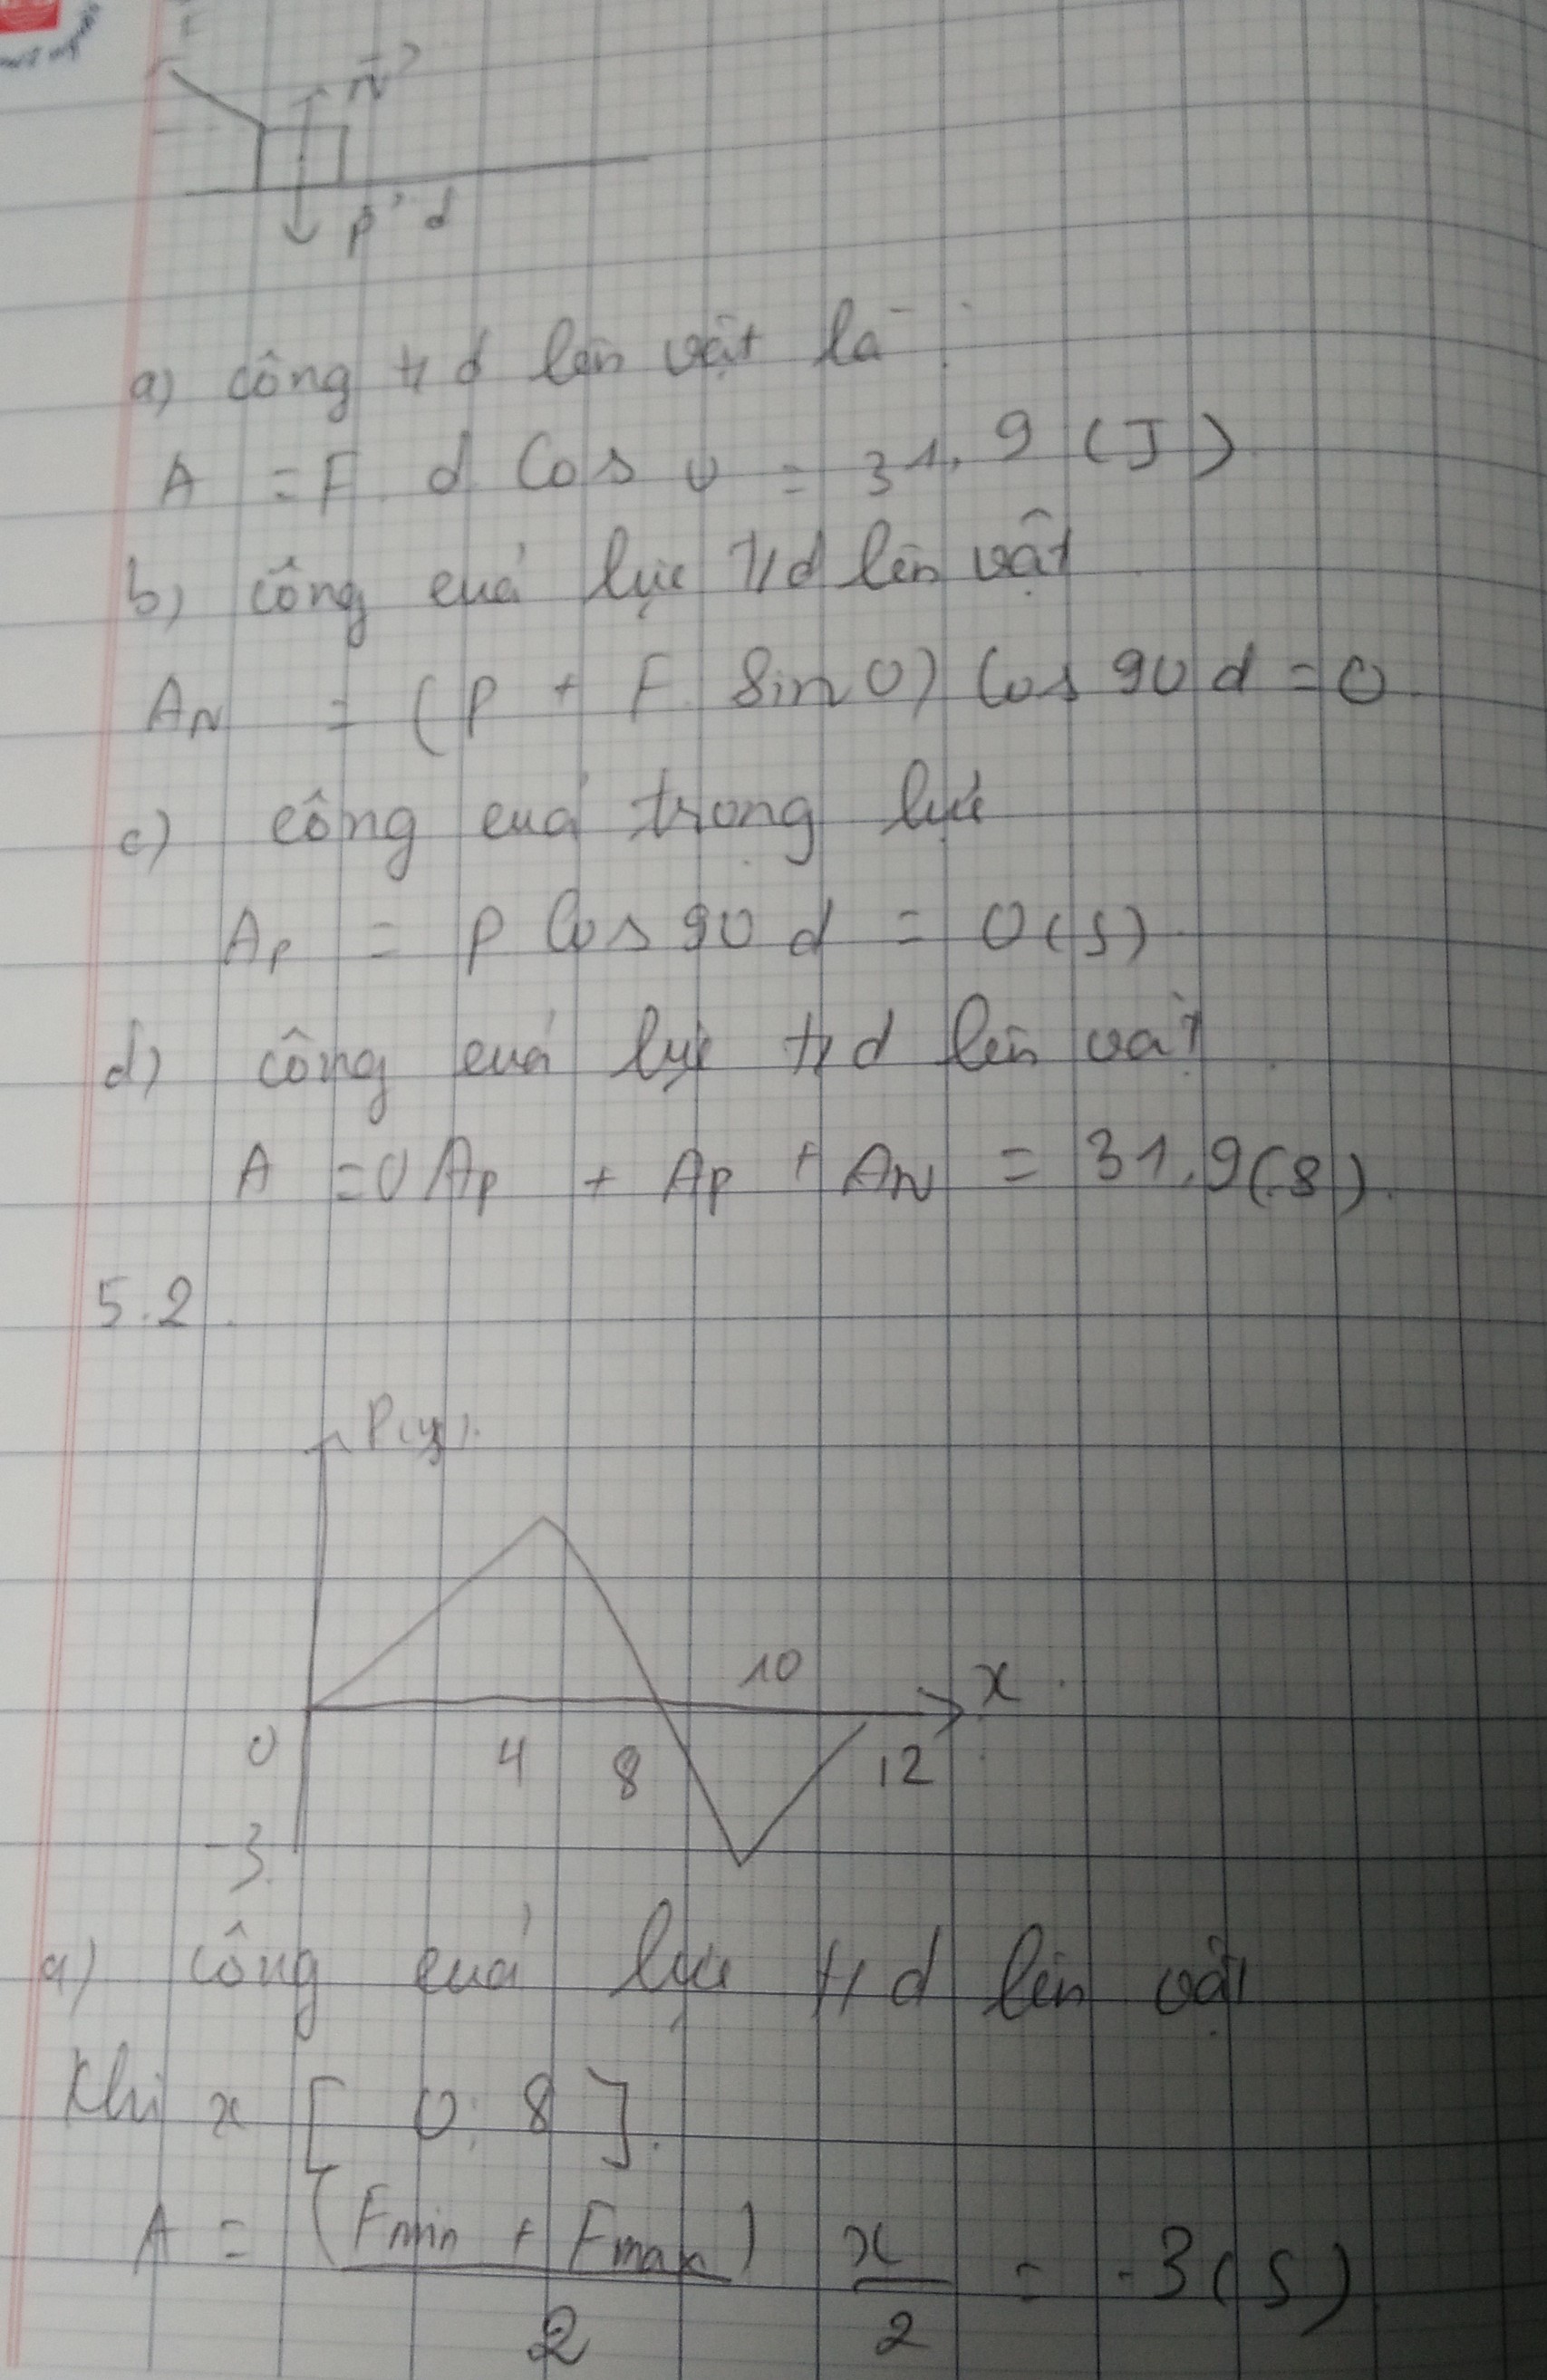 N
P d
a) công t/d lên vật là :
A = F. d cos 0 = 31,9 (J)
b) công cuả lực t/d lên vật
AN = (P + F. Sin 0) Cos 90 d = 0
c) công cuả trọng lực
AP = P Cos 90 d = 0 (J)
d) công cuả lực t/d lên vật
A = 0 AP + AP + AN = 31,9 (J).
5.2.
10 x
0 4 8 12
-3
a) công cuả lực t/d lên vật
Khi x [ 0; 8 ].
A = (Fmin + Fmax) / 2 x / 2 = -3 (J)